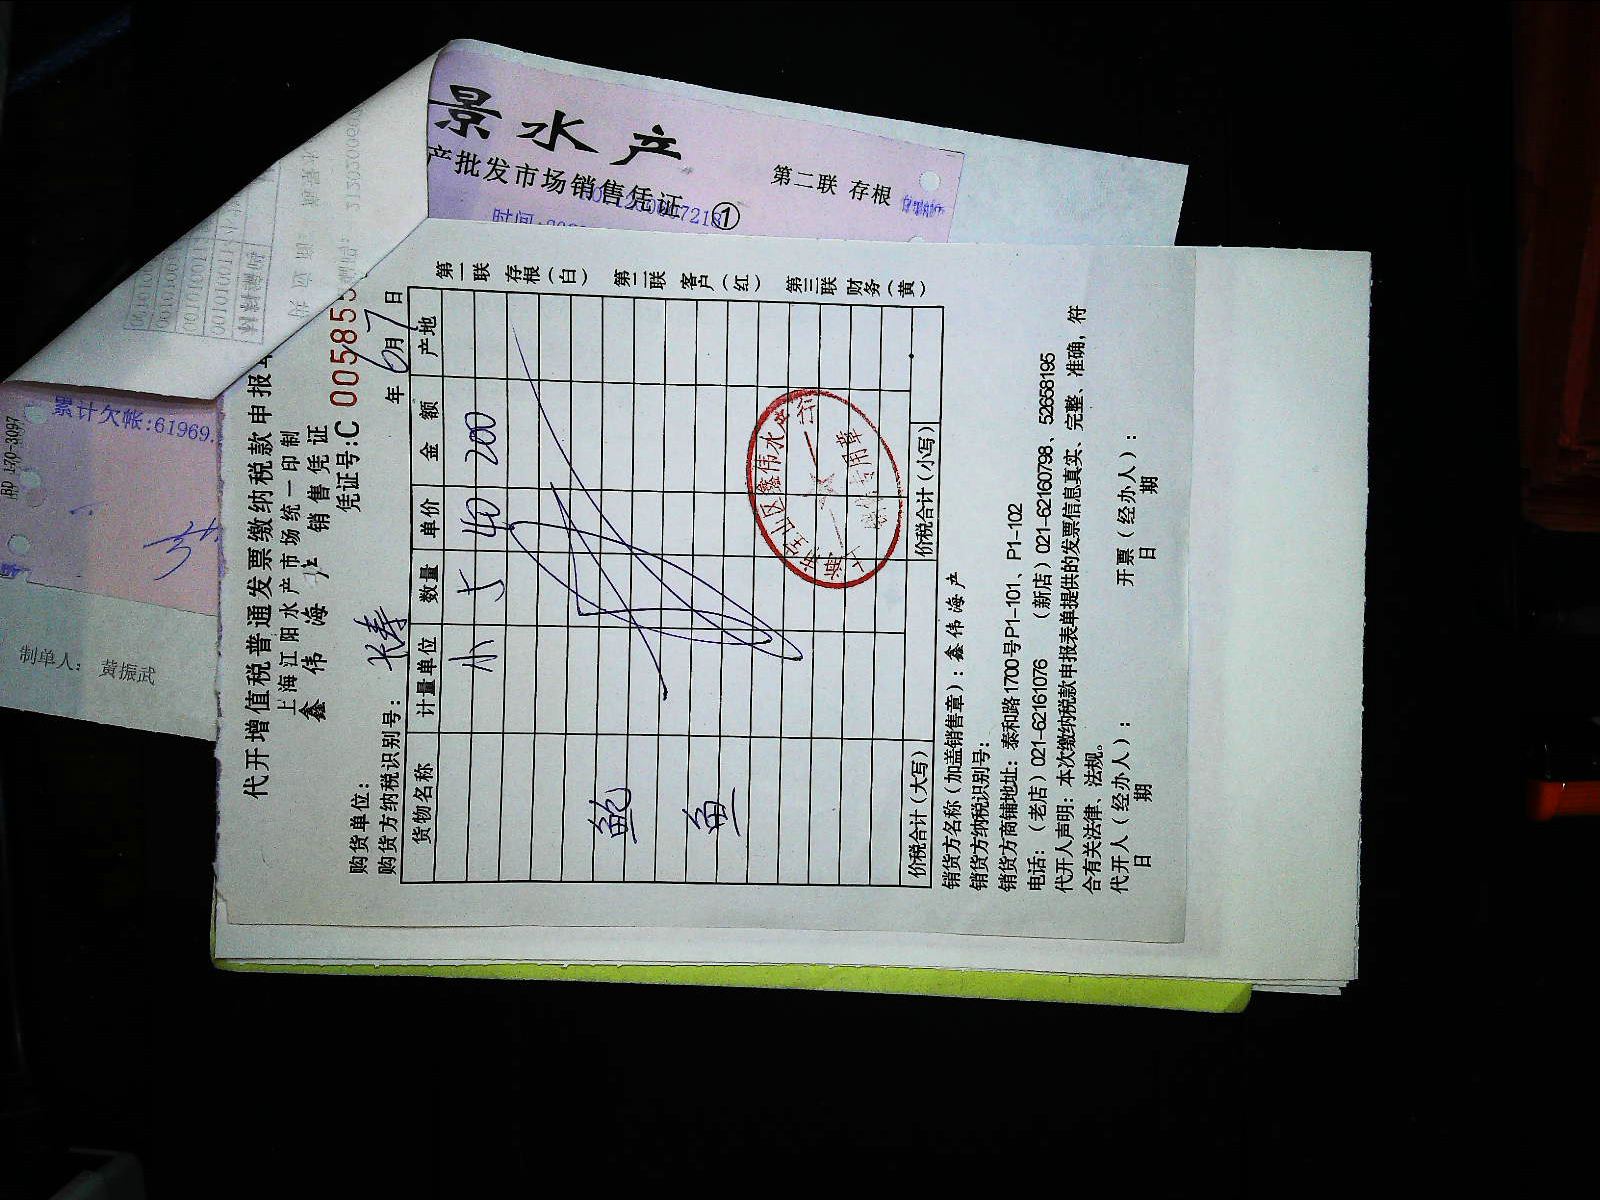 景水产
产批发市场销售凭证 ①
第二联 存根
时间:202
累计欠帐:61969.
制单人： 黄振武
代开增值税普通发票缴纳税款申报单
上海江阳水产市场统一印制
鑫伟海产 销售凭证
凭证号:C 005855
购货单位：
购货方纳税识别号： 长寿
年 6月7日
货物名称 计量单位 数量 单价 金额 产地
小 5 40 200
鲍
鱼
价税合计（大写） 价税合计（小写）
第一联 存根（白） 第二联 客户（红） 第三联 财务（黄）
销货方名称（加盖销售章）：鑫伟海产
销货方纳税识别号：
销货方商铺地址：泰和路1700号P1-101、P1-102
电话：（老店）021-62161076 （新店）021-62160798、52658195
代开人声明：本次缴纳税款申报表单提供的发票信息真实、完整、准确，符
合有关法律、法规。
代开人（经办人）： 开票（经办人）：
日 期 日 期